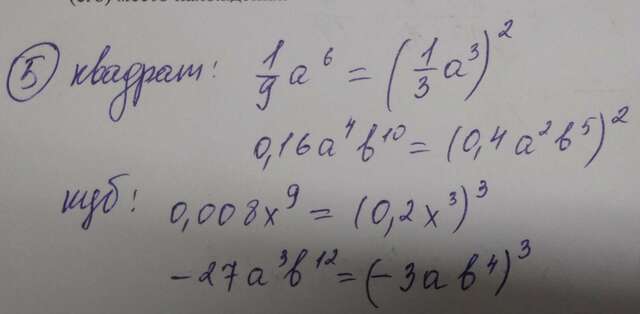 (5) квадрат: 1/9 a⁶ = (1/3 a³)²
0,16a⁴b¹⁰ = (0,4a²b⁵)²
куб: 0,008x⁹ = (0,2x³)³
-27a³b¹² = (-3ab⁴)³